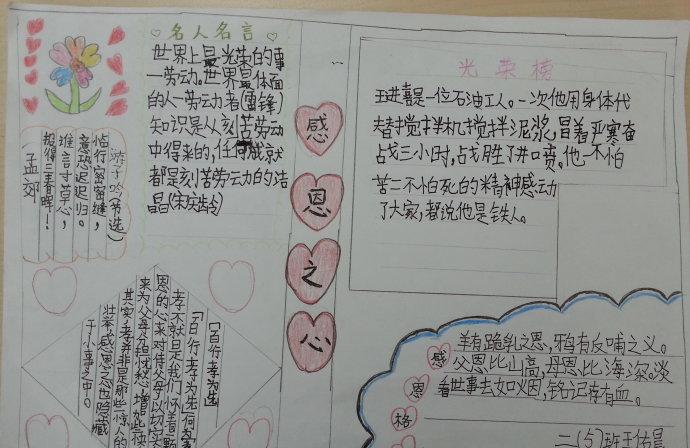 名人名言
世界上最光荣的事
一劳动。世界最体面
的人一劳动者(雷锋)
知识是从刻苦劳动
中得来的,任何成就
都是刻苦劳动的结
晶(宋庆龄)
游子吟(节选)
临行密密缝,
意恐迟迟归。
谁言寸草心,
报得三春晖!
孟郊
感
恩
之
心
光荣榜
王进喜是一位石油工人。一次他用身体代
替搅拌机搅拌泥浆,冒着严寒奋
战三小时,战胜了井喷。他一不怕
苦二不怕死的精神感动
了大家,都说他是铁人。
百行孝为先
「百行孝为先」何为
孝不就是我们怀着一颗
恩的心来对待父母以切实
来为父母分担忧愁增加些快
其实孝并非是那些惊人的
壮举感恩之也隐藏
于小事之中。
感
恩
格
羊有跪乳之恩,鸦有反哺之义。
父恩比山高,母恩比海深。淡
看世事去如烟,铭记存有血。
二(5)班王佑